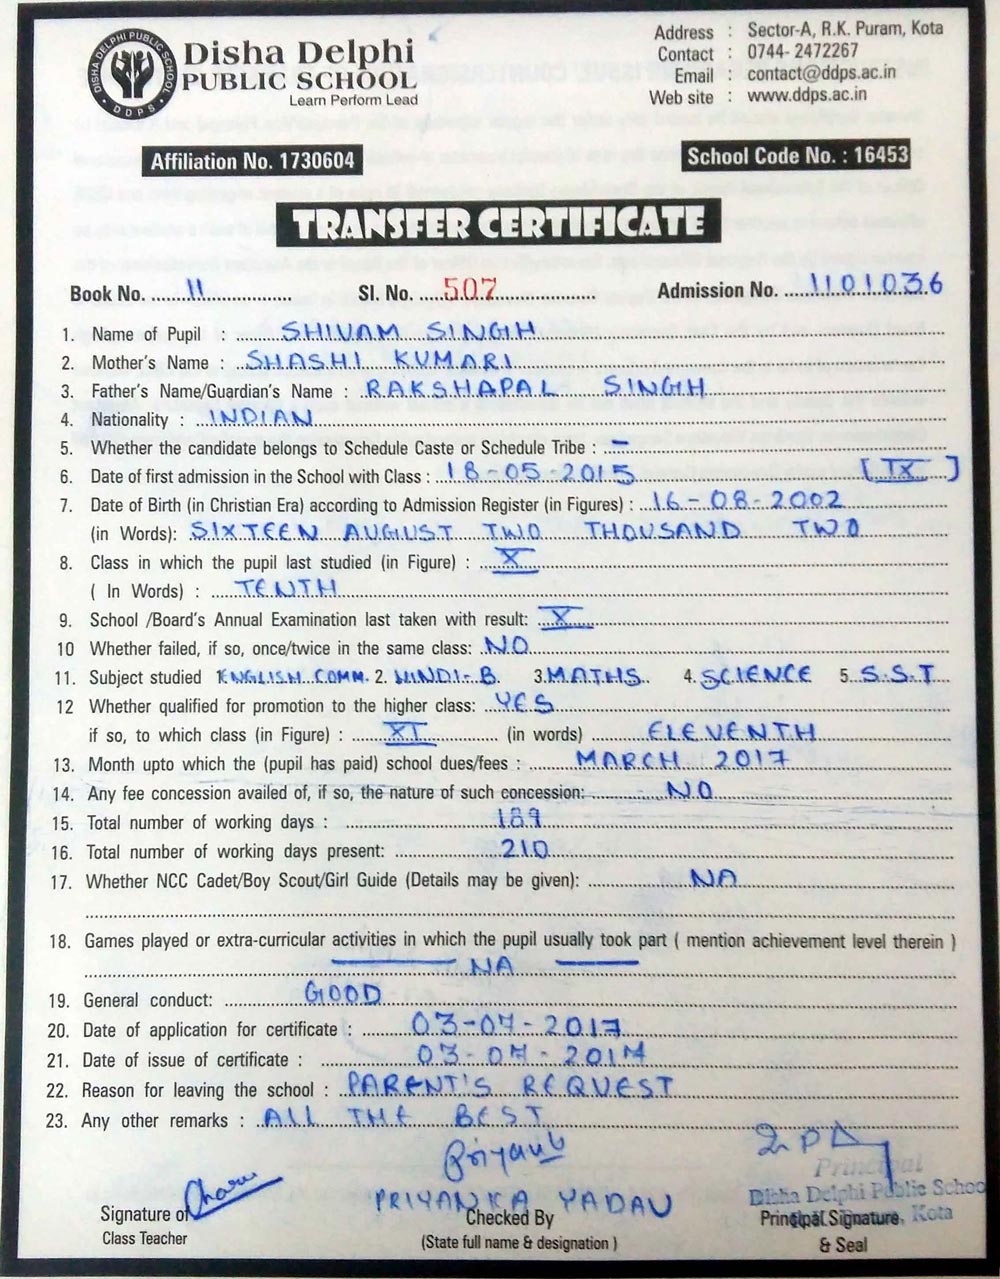 DISHA DELPHI PUBLIC SCHOOL
DDPS
Disha Delphi
PUBLIC SCHOOL
Learn Perform Lead
Address : Sector-A, R.K. Puram, Kota
Contact : 0744- 2472267
Email : contact@ddps.ac.in
Web site : www.ddps.ac.in
Affiliation No. 1730604
School Code No. : 16453
TRANSFER CERTIFICATE
Book No. 11 Sl. No. 507 Admission No. 1101036
1. Name of Pupil : SHIVAM SINGH
2. Mother's Name : SHASHI KUMARI
3. Father's Name/Guardian's Name : RAKSHAPAL SINGH
4. Nationality : INDIAN
5. Whether the candidate belongs to Schedule Caste or Schedule Tribe : –
6. Date of first admission in the School with Class : 18-05-2015 [IX]
7. Date of Birth (in Christian Era) according to Admission Register (in Figures) : 16-08-2002
(in Words): SIXTEEN AUGUST TWO THOUSAND TWO
8. Class in which the pupil last studied (in Figure) : X
( In Words) : TENTH
9. School /Board's Annual Examination last taken with result: X
10 Whether failed, if so, once/twice in the same class: NO
11. Subject studied 1. ENGLISH COMM. 2. HINDI-B 3. MATHS 4. SCIENCE 5. S.S.T
12 Whether qualified for promotion to the higher class: YES
if so, to which class (in Figure) : XI (in words) ELEVENTH
13. Month upto which the (pupil has paid) school dues/fees : MARCH 2017
14. Any fee concession availed of, if so, the nature of such concession: NO
15. Total number of working days : 189
16. Total number of working days present: 210
17. Whether NCC Cadet/Boy Scout/Girl Guide (Details may be given): NA
18. Games played or extra-curricular activities in which the pupil usually took part ( mention achievement level therein )
NA
19. General conduct: GOOD
20. Date of application for certificate : 03-07-2017
21. Date of issue of certificate : 03-07-2017
22. Reason for leaving the school : PARENT'S REQUEST
23. Any other remarks : ALL THE BEST
Charu
Priyanka
PRIYANKA YADAV
Principal
Disha Delphi Public School
Kota
Signature of
Class Teacher
Checked By
(State full name & designation )
Principal Signature
& Seal